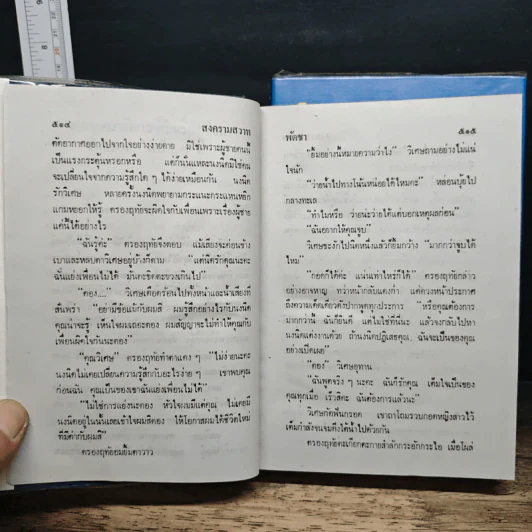 ๕๑๔ สงครามสวาท
ตัดอากาศออกไปจากใจอย่างง่ายดาย มิใช่เพราะผู้ชายคนนี้
เป็นแรงกระตุ้นหรอกหรือ แต่ก็นั่นแหละนงนิตมิใช่คน
จะเปลี่ยนใจจากความรู้สึกใด ๆ ได้ง่ายเหมือนกัน นงนิต
รักวิเศษ หลายครั้งนงนิตพยายามกระแนะกระแหนหยิก
แกมหยอกให้รู้ ครองฤทัยจะผิดใจกับเพื่อนเพราะเรื่องผู้ชาย
แค่นี้ได้อย่างไร
“ฉันรู้ค่ะ” ครองฤทัยจึงตอบ แม้เสียงจะค่อนข้าง
เบาและหลบตาวิเศษอยู่บ้างก็ตาม “แต่ดิตรักคุณนะคะ
ฉันแย่งเพื่อนไม่ได้ มันคะขิดคะขวงเกินไป”
“คอง....” วิเศษเดือดร้อนไปทั้งหน้าและน้ำเสียงที่
สั่นพร่า อย่ามีข้อแม้กับผมสิ ผมรู้สึกอย่างไรกับนงนิต
คุณน่าจะรู้ เห็นใจผมเถอะคอง ผมสัญญาจะไม่ทำให้คุณกับ
เพื่อนผิดใจกันนะคอง”
“คุณวิเศษ” ครองฤทัยทำตาแดง ๆ “ไม่ง่ายนะคะ
นงนิตไม่เคยเปลี่ยนความรู้สึกกับอะไรง่าย ๆ เขาพบคุณ
ก่อนฉัน คุณเป็นของเขาฉันแย่งเพื่อนไม่ได้”
“ไม่ใช่การแย่งนะคอง หัวใจผมมีแต่คุณ ไม่เคยมี
นงนิตอยู่ในนั้นเลยเข้าใจผมสิคอง ให้โอกาสผมได้ชีวิตใหม่
ที่มีค่ากับผมสิ”
ครองฤทัยอมยิ้มตาวาว
พัดชา ๕๑๕
“ยิ้มอย่างนี้หมายความว่าไง” วิเศษถามอย่างไม่แน่
ใจนัก
“ว่ายน้ำไปทางโน้นหน่อยได้ไหมคะ” หล่อนบุ้ยไป
กลางทะเล
“ทำไมหรือ ว่ายน่ะว่ายได้แต่บอกเหตุผลก่อน”
“ฉันอยากให้คุณจูบ”
วิเศษชะงักไปนิดหนึ่งแล้วก็ยิ้มกว้าง “มากกว่าจูบได้
ไหม”
“กอดก็ได้ค่ะ แน่นเท่าไหร่ก็ได้” ครองฤทัยกล่าว
อย่างอาจหาญ ทว่าหน้ากลับแดงก่ำ แต่ดวงหน้าประกาศ
ถึงความเด็ดเดี่ยวดังปากพูดทุกประการ “หรือคุณต้องการ
มากกว่านี้ ฉันก็ยินดี แต่ไม่ใช่ที่นี่นะ แล้วจงกลับไปหา
นงนิตแต่งงานด้วย ถ้านงนิตปฏิเสธคุณ ฉันจะเป็นของคุณ
อย่างเปิดเผย”
“คอง” วิเศษอุทาน
“ฉันพูดจริง ๆ นะคะ ฉันก็รักคุณ เต็มใจเป็นของ
คุณทุกเมื่อ เร็วสิคะ ฉันต้องการแล้วนะ”
วิเศษกัดฟันกรอด เขาถาโถมรวบกอดหญิงสาวไว้
เต็มกำลังจนจมดิ่งใต้น้ำไปด้วยกัน
ครองฤทัยตะเกียกตะกายสำลักกระอักกระไอ เมื่อโผล่